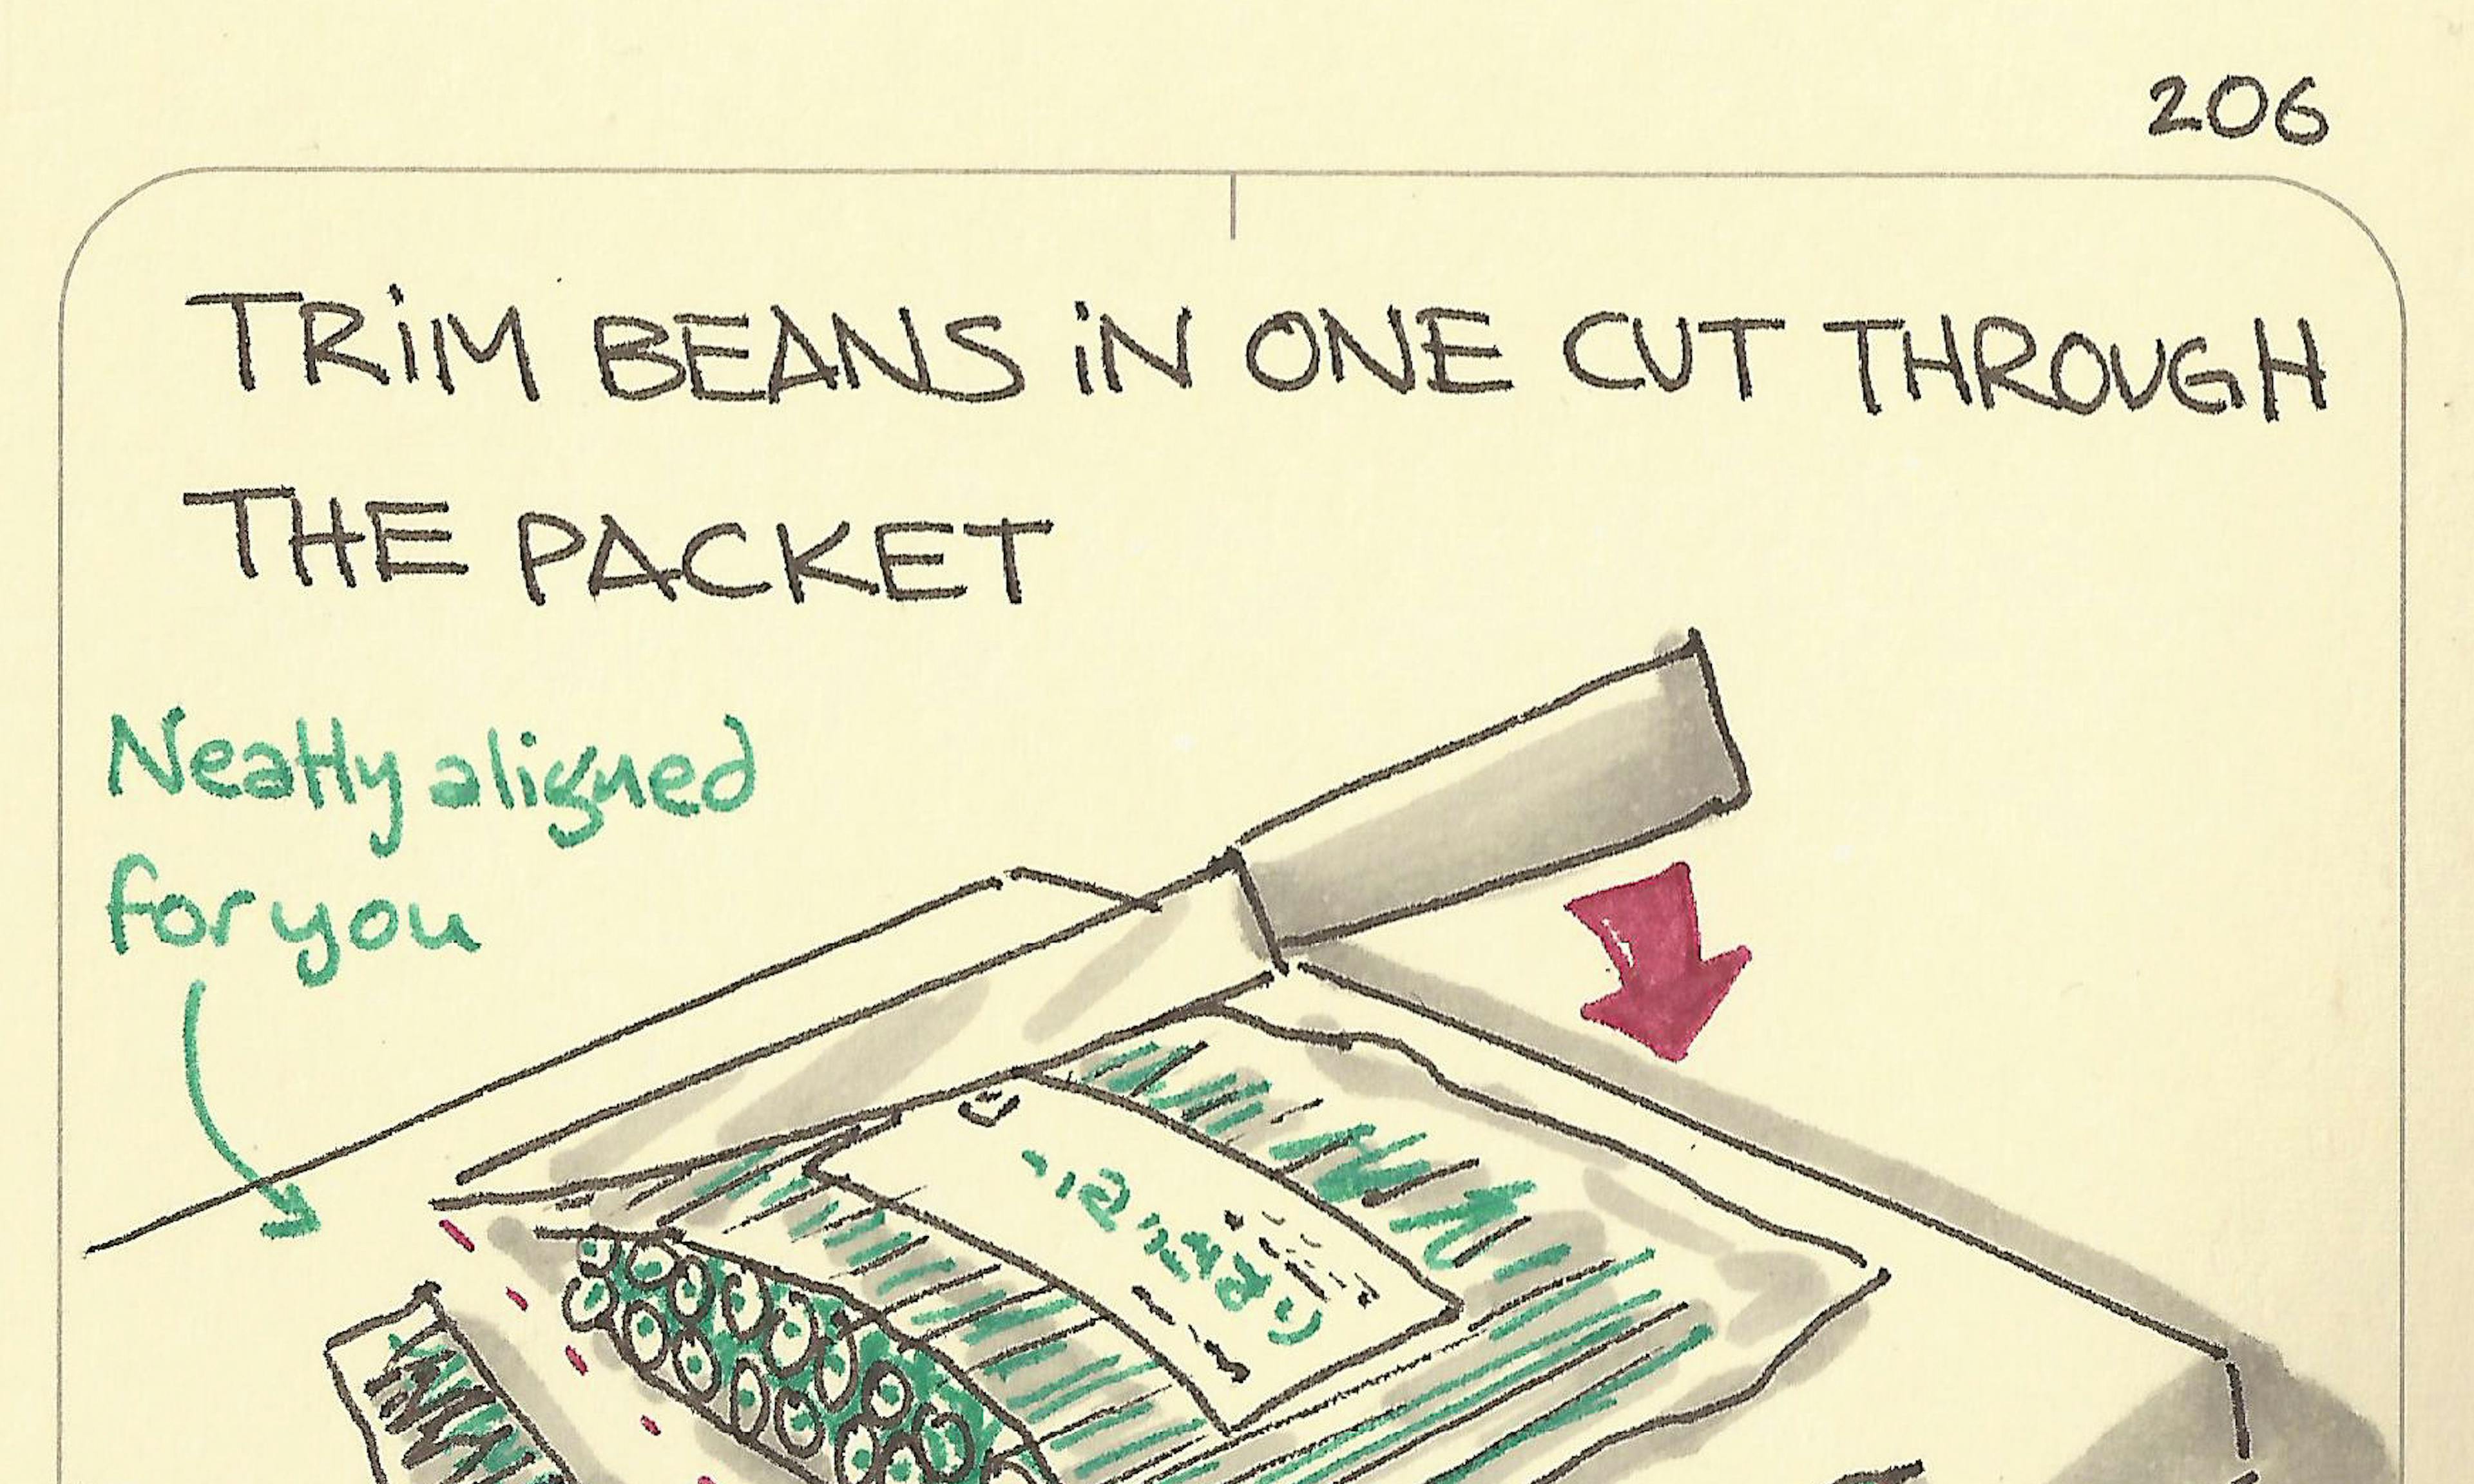 206
TRiM BEANS iN ONE CUT THROUGH
THE PACKET
Neatly aligned
for you